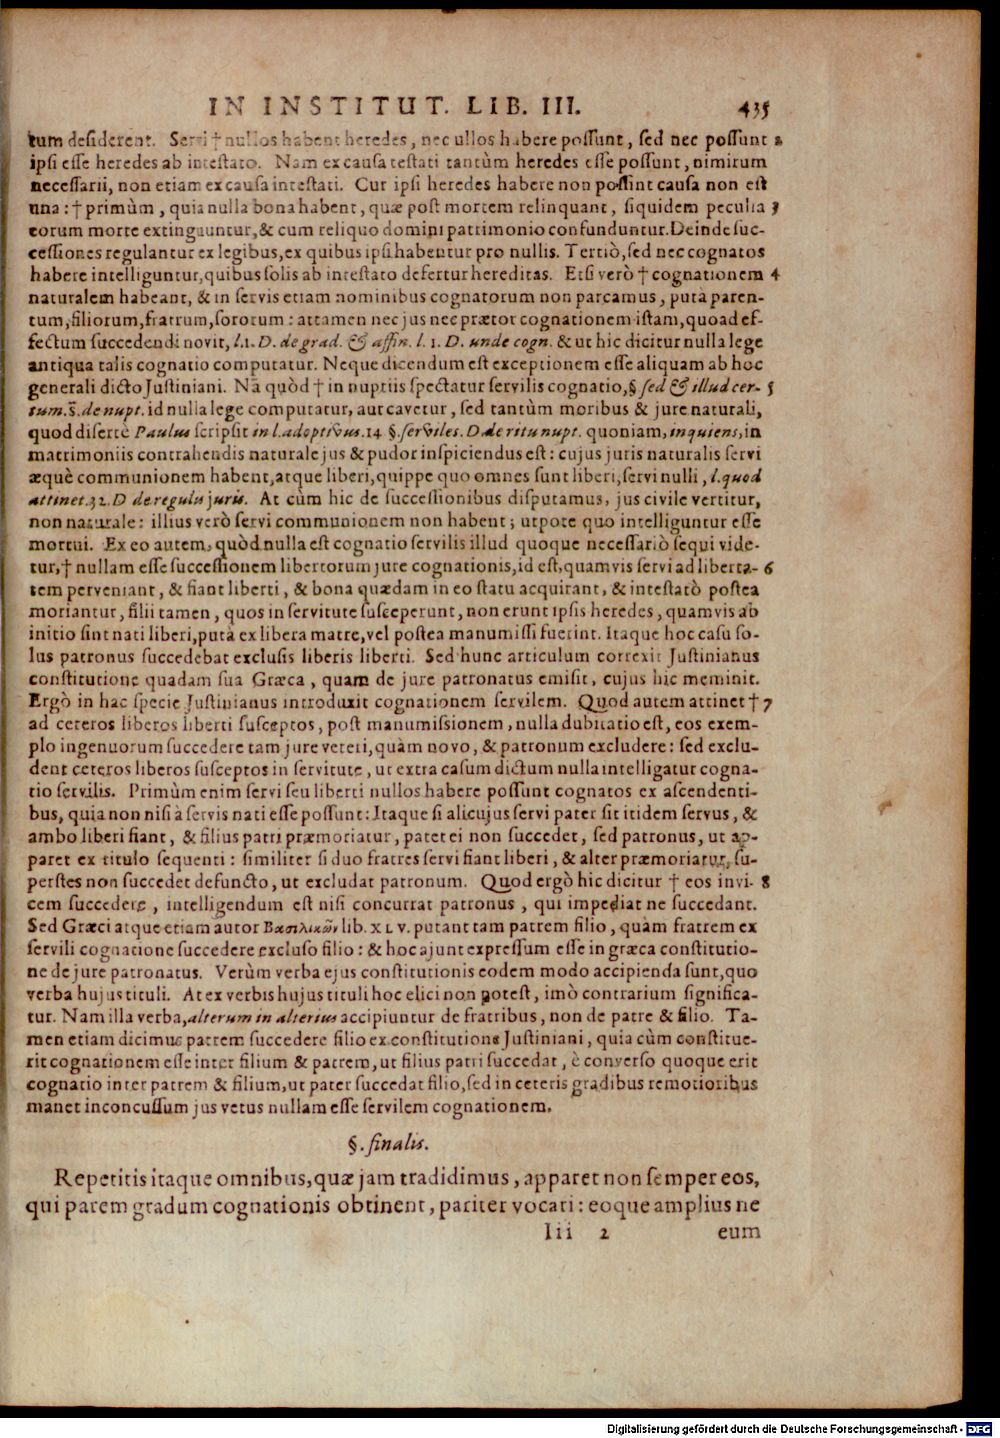 IN INSTITUT. LIB. III. 435
tum desiderent. Servi † nullos habent heredes, nec ullos habere possunt, sed nec possunt 2
ipsi esse heredes ab intestato. Nam ex causa testati tantùm heredes esse possunt, nimirum
necessarii, non etiam ex causa intestati. Cur ipsi heredes habere non possint causa non est
una: † primùm, quia nulla bona habent, quæ post mortem relinquant, siquidem peculia 3
eorum morte extinguuntur, & cum reliquo domini patrimonio confunduntur. Deinde suc-
cessiones regulantur ex legibus, ex quibus ipsi habentur pro nullis. Tertiò, sed nec cognatos
habere intelliguntur, quibus solis ab intestato defertur hereditas. Etsi verò † cognationem 4
naturalem habeant, & in servis etiam nominibus cognatorum non parcamus, putà paren-
tum, filiorum, fratrum, sororum: attamen nec jus nec prætor cognationem istam, quoad ef-
fectum succedendi novit, l.1. D. de grad. & affin. l. 1. D. unde cogn. & ut hic dicitur nulla lege
antiqua talis cognatio computatur. Neque dicendum est exceptionem esse aliquam ab hoc
generali dicto Justiniani. Nã quòd † in nuptiis spectatur servilis cognatio, § sed & illud cer- 5
tum. s̄. de nupt. id nulla lege computatur, aut cavetur, sed tantùm moribus & jure naturali,
quod disertè Paulus scripsit in l. adoptivus. 14 §. serviles. D. de ritu nupt. quoniam, inquiens, in
matrimoniis contrahendis naturale jus & pudor inspiciendus est: cujus juris naturalis servi
æquè communionem habent, atque liberi, quippe quo omnes sunt liberi, servi nulli, l. quod
attinet. 32. D de regulu juris. At cùm hic de successionibus disputamus, jus civile vertitur,
non naturale: illius verò servi communionem non habent; utpote quo intelliguntur esse
mortui. Ex eo autem, quòd nulla est cognatio servilis illud quoque necessariò sequi vide-
tur, † nullam esse successionem libertorum jure cognationis, id est, quamvis servi ad liberta- 6
tem perveniant, & fiant liberti, & bona quædam in eo statu acquirant, & intestatò postea
moriantur, filii tamen, quos in servitute susceperunt, non erunt ipsis heredes, quamvis ab
initio sint nati liberi, putà ex libera matre, vel postea manumissi fuerint. Itaque hoc casu so-
lus patronus succedebat exclusis liberis liberti. Sed hunc articulum correxit Justinianus
constitutione quadam sua Græca, quam de jure patronatus emisit, cujus hîc meminit.
Ergò in hac specie Justinianus introduxit cognationem servilem. Quod autem attinet † 7
ad ceteros liberos liberti susceptos, post manumissionem, nulla dubitatio est, eos exem-
plo ingenuorum succedere tam jure veteri, quàm novo, & patronum excludere: sed exclu-
dent ceteros liberos susceptos in servitute, ut extra casum dictum nulla intelligatur cogna-
tio servilis. Primùm enim servi seu liberti nullos habere possunt cognatos ex ascendenti-
bus, quia non nisi à servis nati esse possunt: Itaque si alicujus servi pater sit itidem servus, &
ambo liberi fiant, & filius patri præmoriatur, pater ei non succedet, sed patronus, ut ap-
paret ex titulo sequenti: similiter si duo fratres servi fiant liberi, & alter præmoriatur, su-
perstes non succedet defuncto, ut excludat patronum. Quod ergò hic dicitur † eos invi- 8
cem succedere, intelligendum est nisi concurrat patronus, qui impediat ne succedant.
Sed Græci atque etiam autor Βασιλικῶν lib. XLV. putant tam patrem filio, quàm fratrem ex
servili cognatione succedere excluso filio: & hoc ajunt expressum esse in græca constitutio-
ne de jure patronatus. Verùm verba ejus constitutionis eodem modo accipienda sunt, quo
verba hujus tituli. At ex verbis hujus tituli hoc elici non potest, imò contrarium significa-
tur. Nam illa verba, alterum in alterius accipiuntur de fratribus, non de patre & filio. Ta-
men etiam dicimus patrem succedere filio ex constitutione Justiniani, quia cùm constitue-
rit cognationem esse inter filium & patrem, ut filius patri succedat, è converso quoque erit
cognatio inter patrem & filium, ut pater succedat filio, sed in ceteris gradibus remotioribus
manet inconcussum jus vetus nullam esse servilem cognationem.
§. finalis.
Repetitis itaque omnibus, quæ jam tradidimus, apparet non semper eos,
qui parem gradum cognationis obtinent, pariter vocari: eoque amplius ne
Iii 2 eum
Digitalisierung gefördert durch die Deutsche Forschungsgemeinschaft - DFG